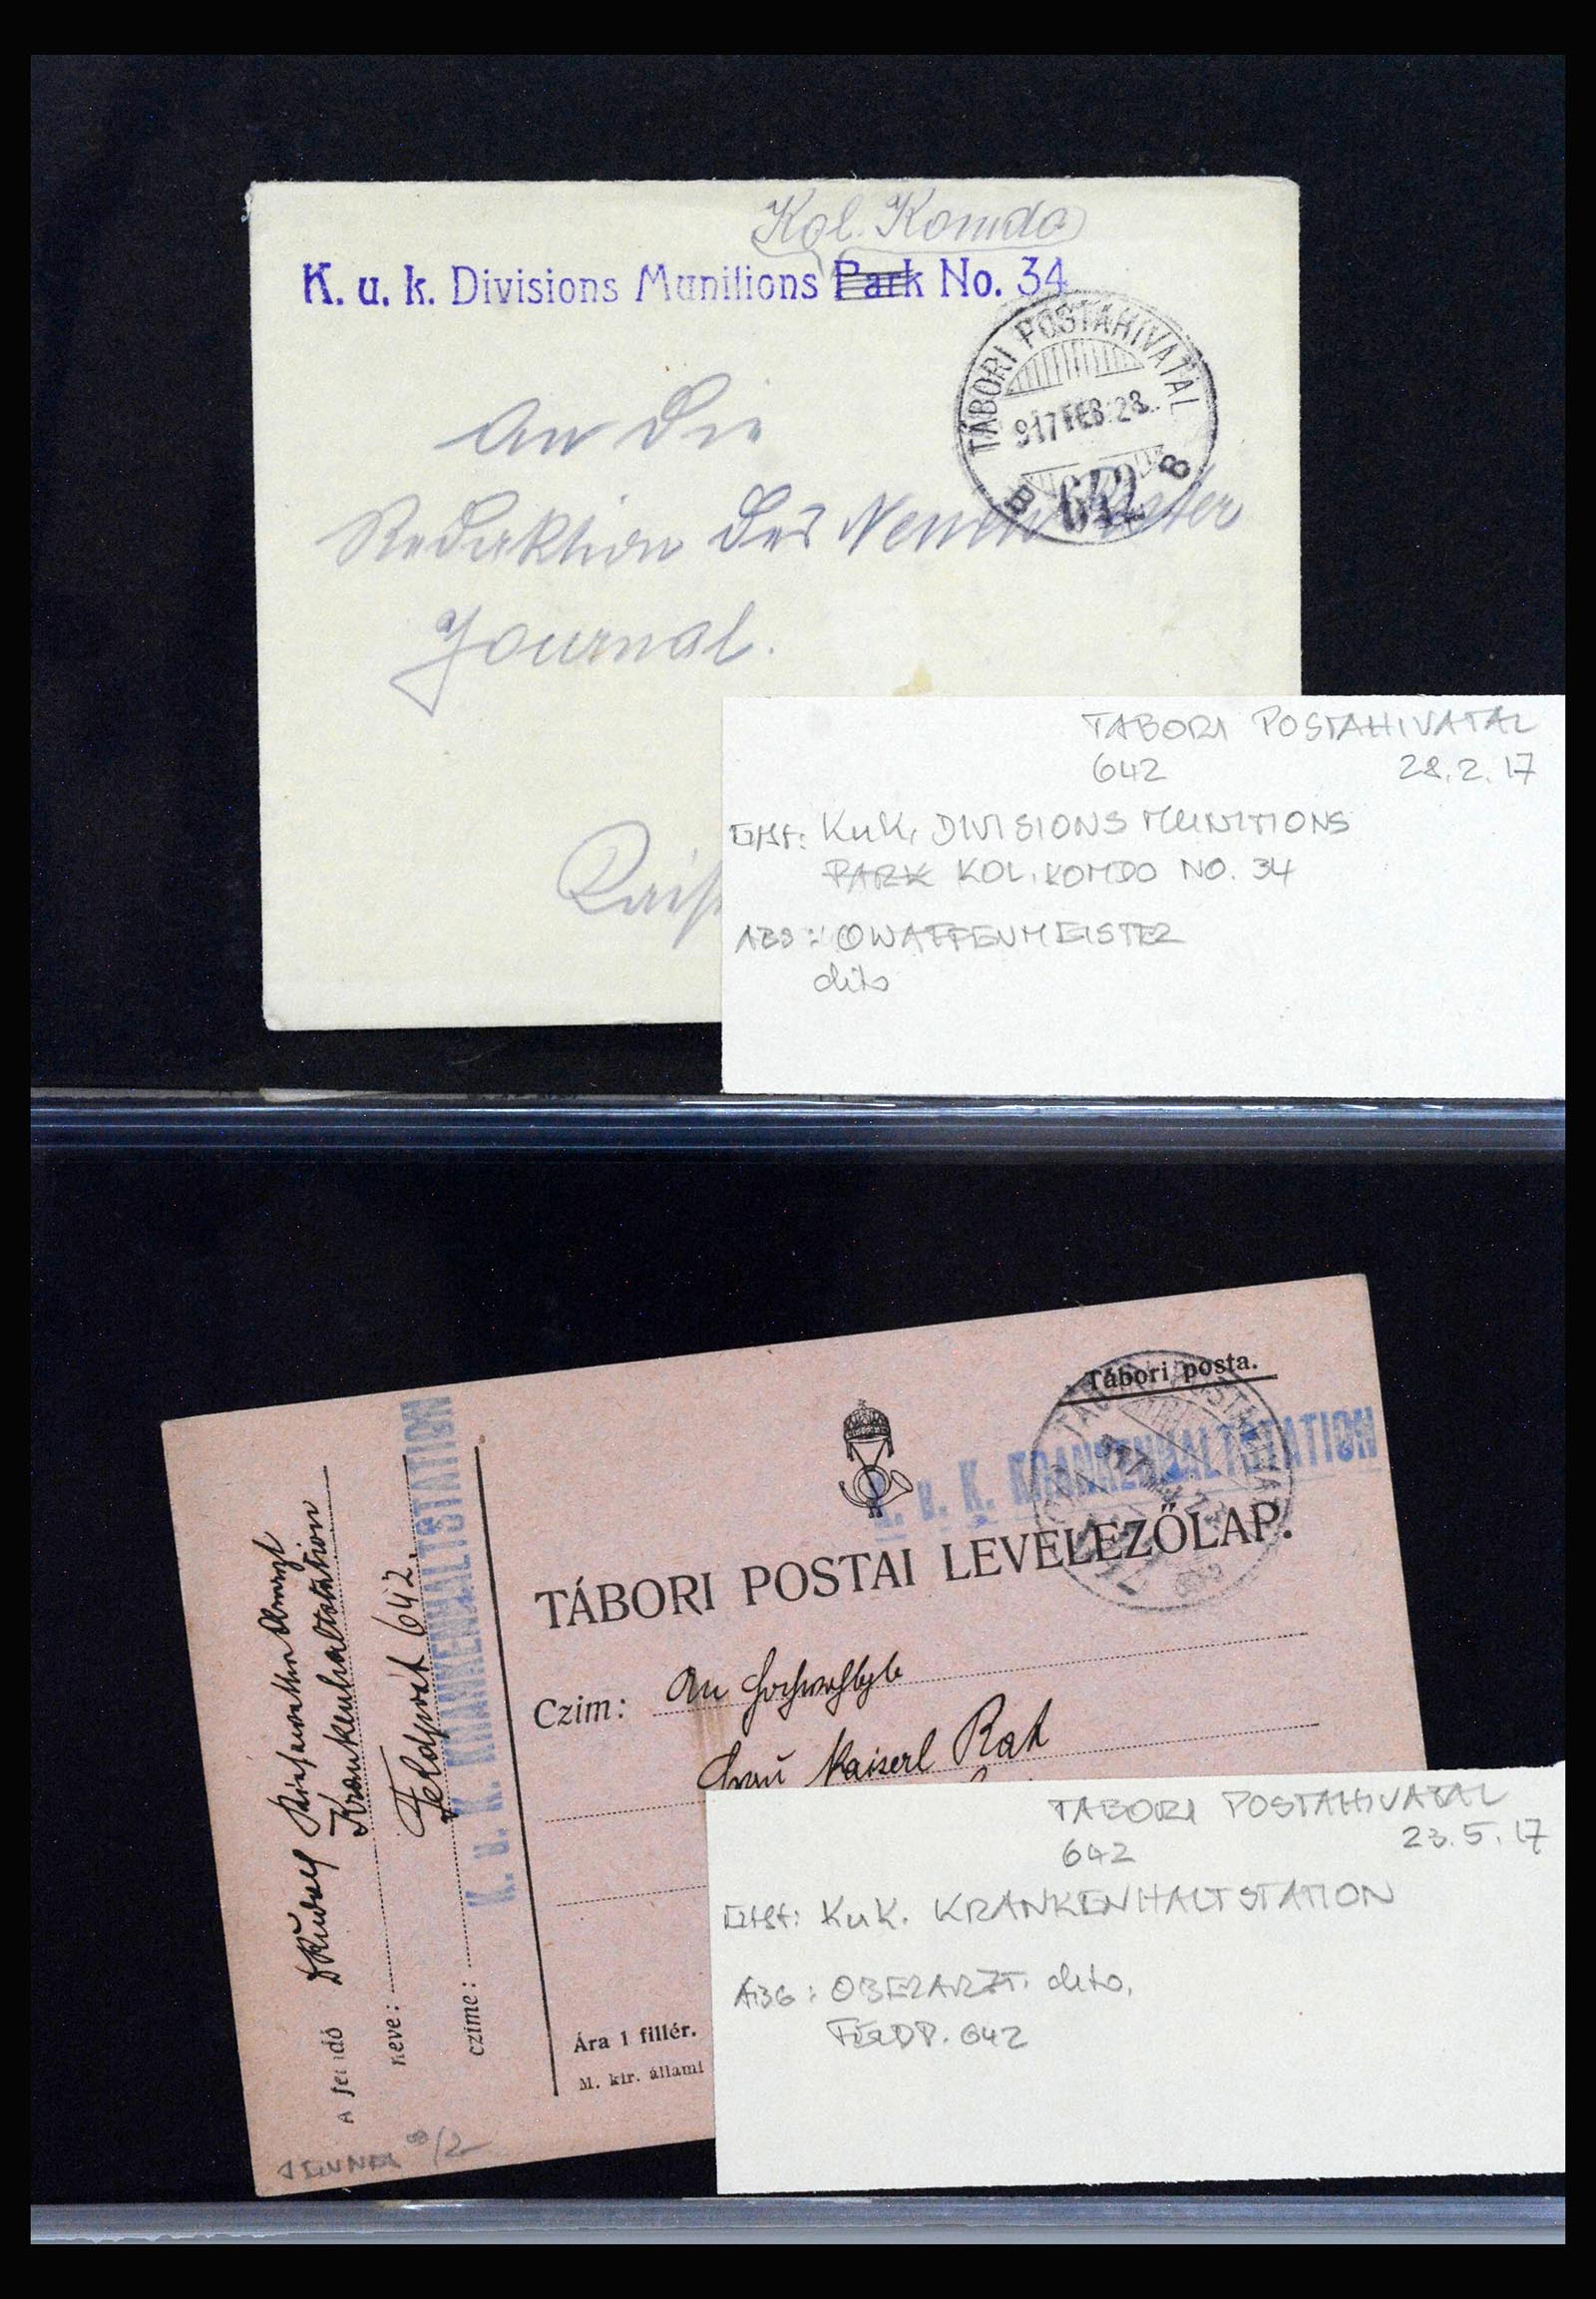 Kol. Komdo
K. u. k. Divisions Munitions Park No. 34
TÁBORI POSTAHIVATAL
917 FEB. 28.
B 642 B
An die
Redaktion des
Journal.
TABORI POSTAHIVATAL
642 28.2.17
KuK. DIVISIONS MUNITIONS
PARK KOL. KOMDO NO. 34
ABS: OWAFFENMEISTER
dito
Tábori posta.
K. u. K. KRANKENHALTSTATION
TÁBORI POSTAI LEVELEZŐLAP.
Czim: An
Frau Kaiserl Rat
Ára 1 fillér.
M. kir. állami
A feladó
Krankenhaltstation
neve:
Feldpost 642.
czime:
K. u. K. KRANKENHALTSTATION
TABORI POSTAHIVATAL
642 23.5.17
KuK. KRANKENHALTSTATION
ABG: OBERARZT. dito.
FELDP. 642